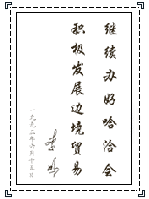 继续办好哈洽会
积极发展边境贸易
李鹏
一九九二年六月十五日